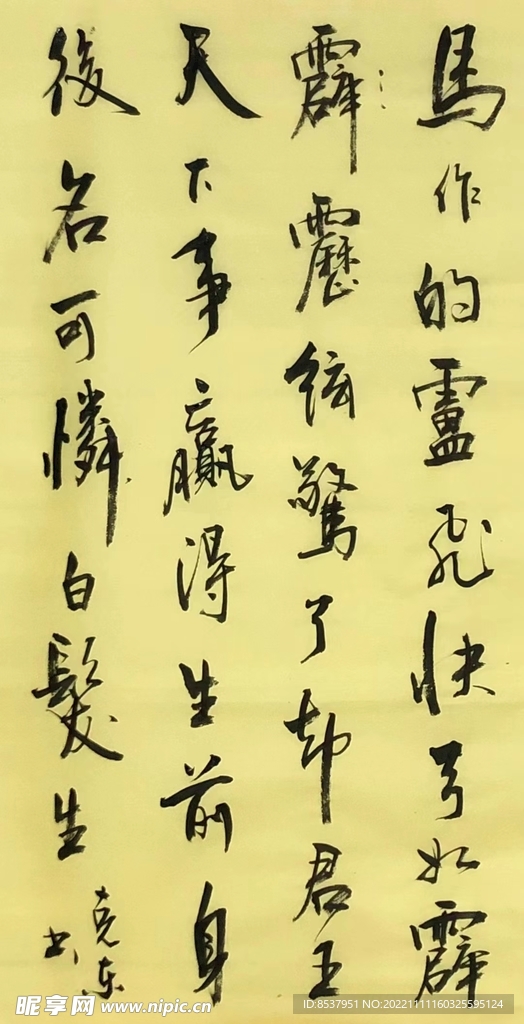 馬作的盧飛快弓如霹
霹靂絃驚了却君王
天下事贏得生前身
後名可憐白髮生
克东
书
昵享网 www.nipic.cn
ID:8537951 NO:20221111160325595124